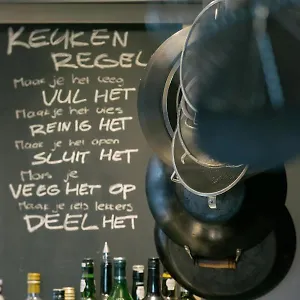 KEUKEN
REGEL
Maak je het leeg
VUL HET
Maak je het vies
REINIG HET
Maak je het open
SLUIT HET
Mors je
VEEG HET OP
Maak je iets lekkers
DEEL HET